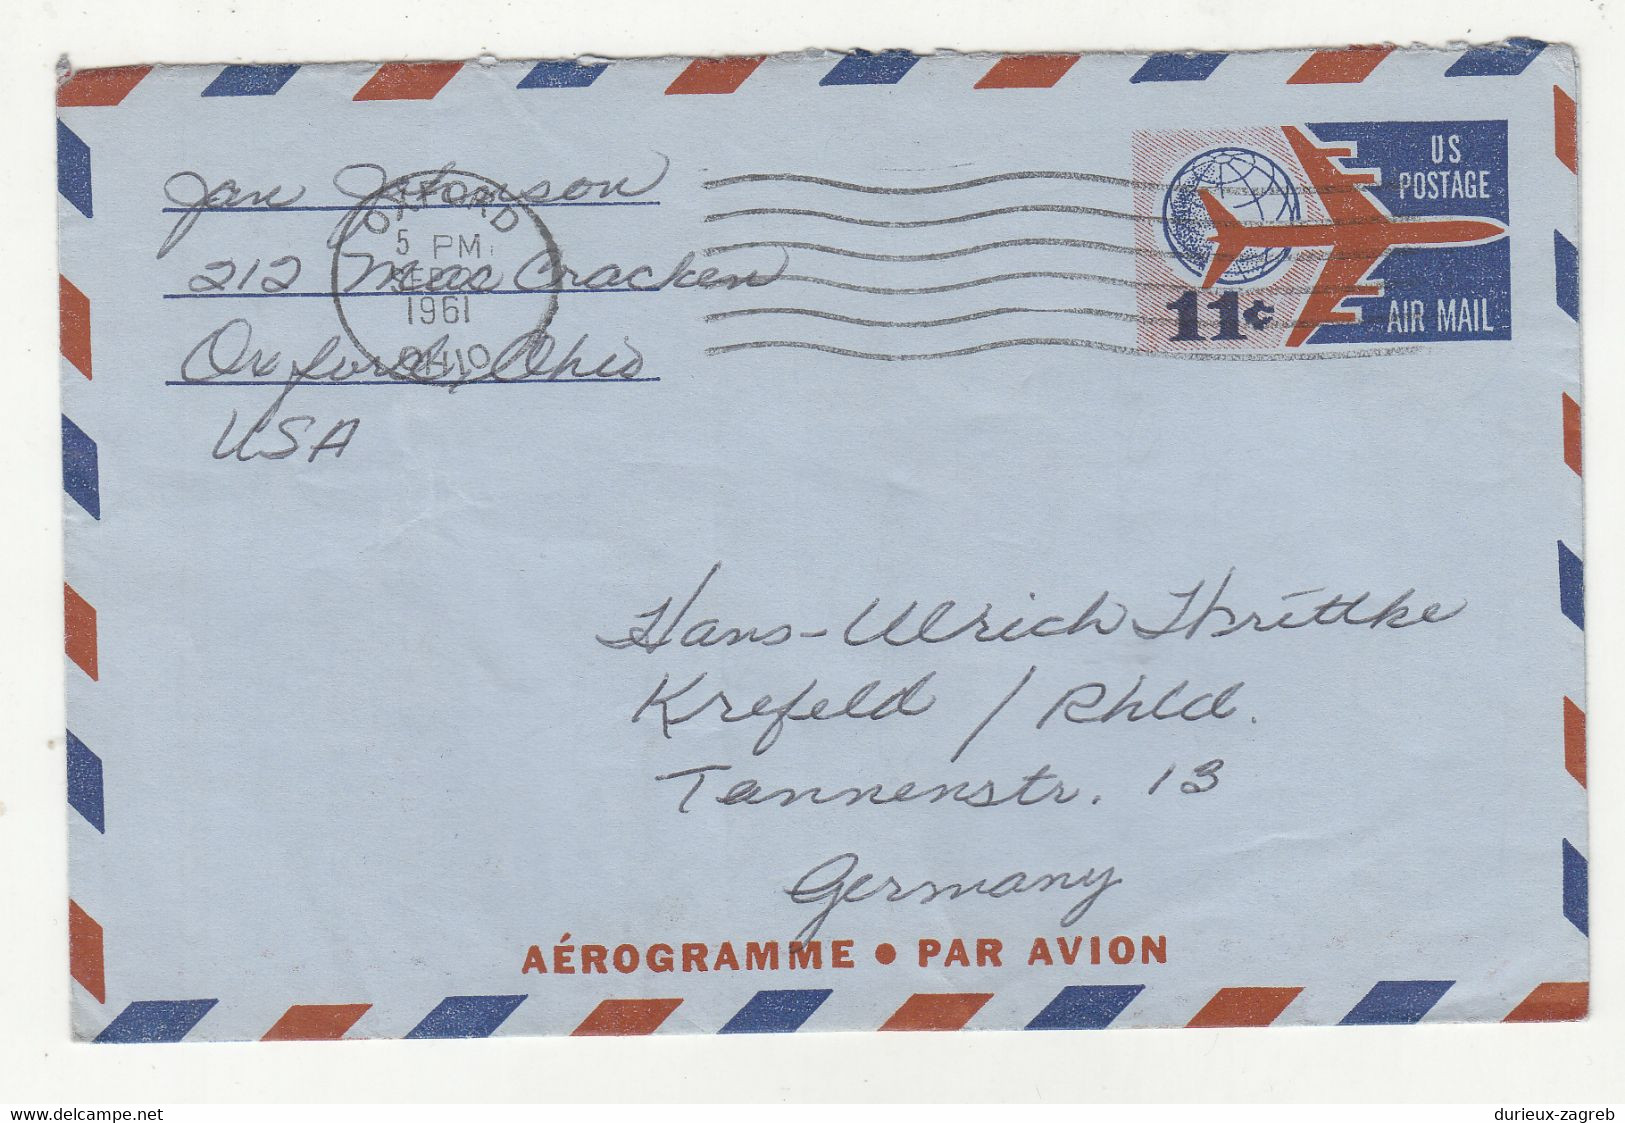 Jan Johnson
212 Mac Cracken
Oxford, Ohio
USA
OXFORD
5 PM
SEP
1961
OHIO
US
POSTAGE
11¢
AIR MAIL
Hans-Ulrich
Krefeld / Rhld.
Tannenstr. 13
Germany
AÉROGRAMME • PAR AVION
www.delcampe.net
durieux-zagreb